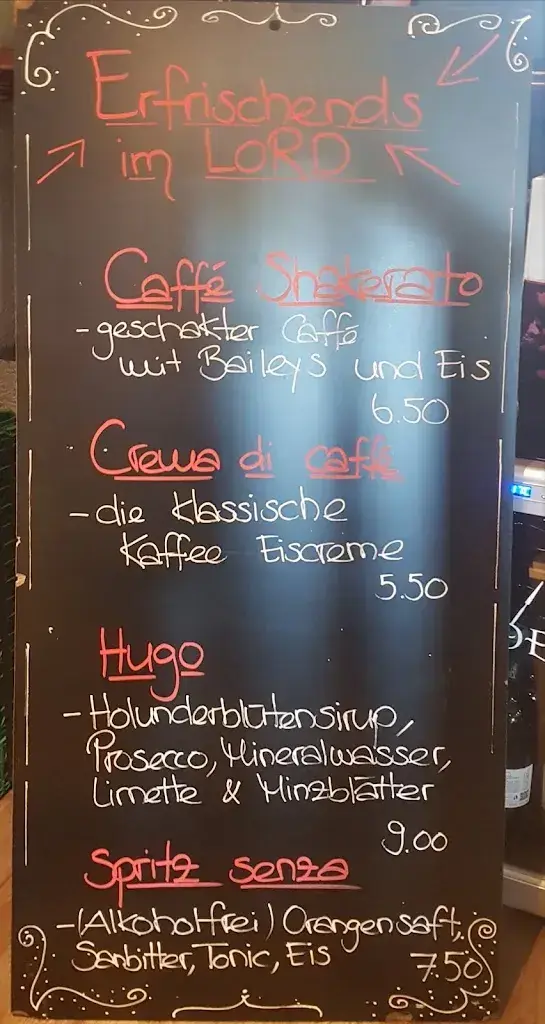 Erfrischends
im LORD
Caffé Shakerato
- geschakter Caffé
mit Baileys und Eis
6.50
Crema di caffé
- die klassische
Kaffee Eiscreme
5.50
Hugo
- Holunderblütensirup,
Prosecco, Mineralwasser,
Limette & Minzblätter
9.00
Spritz senza
- (Alkoholfrei) Orangensaft,
Sanbitter, Tonic, Eis
7.50